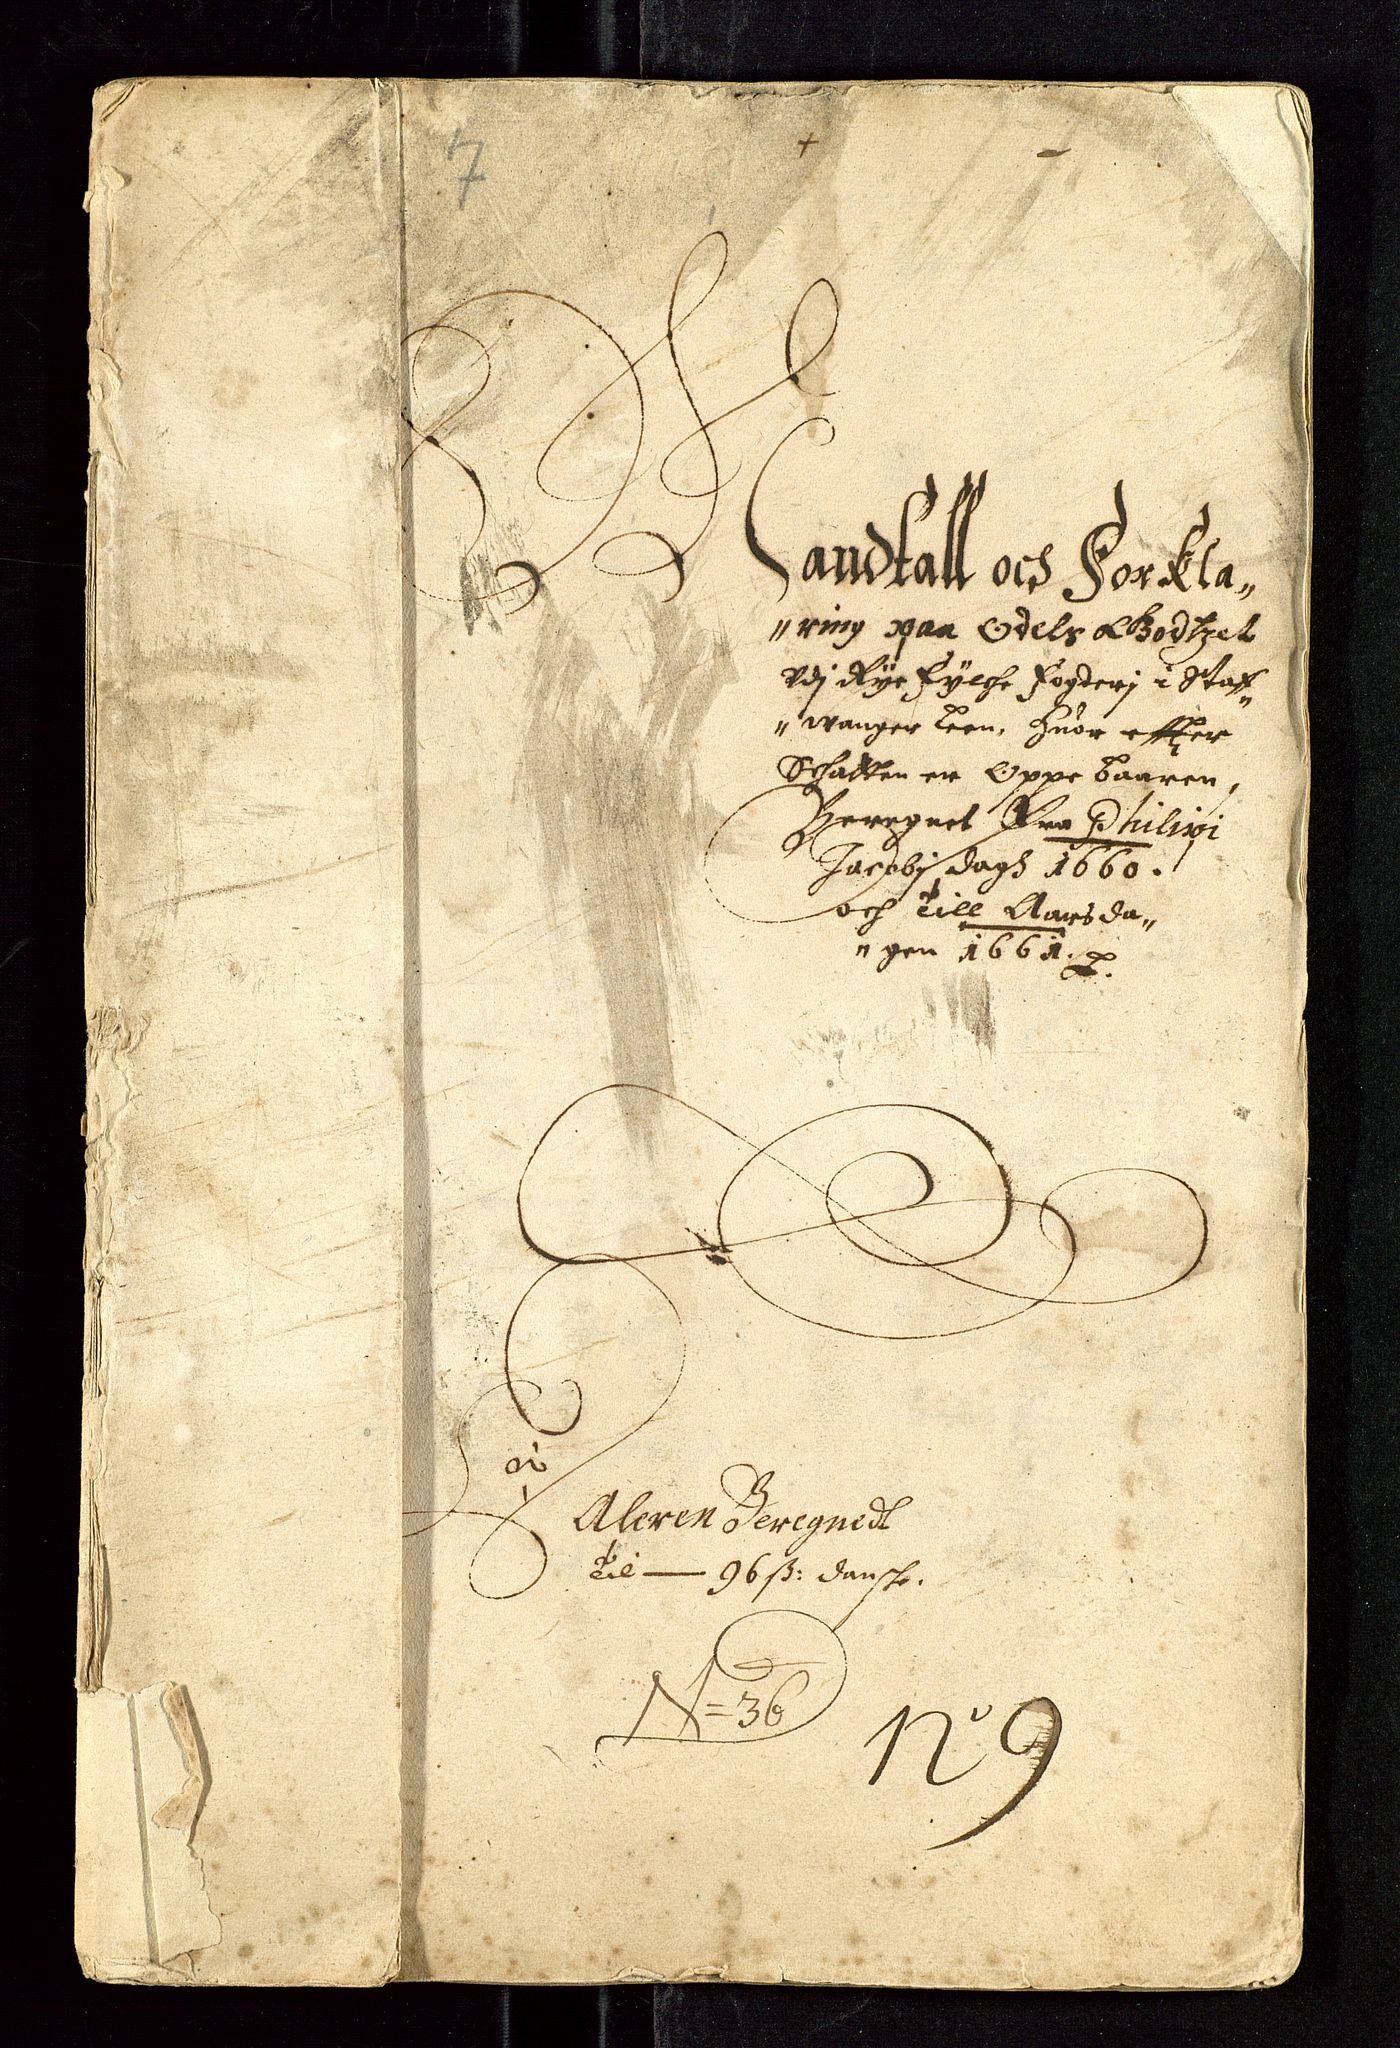 7
Mandtall och Forkla„
„ring paa Odels Godtzet
Vdj Rye Fylche Fogderj i Staff„
„wanger Leen, Huor effter
Schatten er Oppe baaren,
Beregnet Fra Philipi
Jacobj dagh 1660.
och till Aarsda„
„gen 1661. p.
Aleren Beregnedt
til — 96 ß: danske.
N=36
No 9